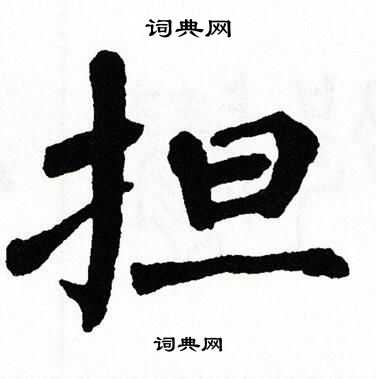 词典网
担
词典网